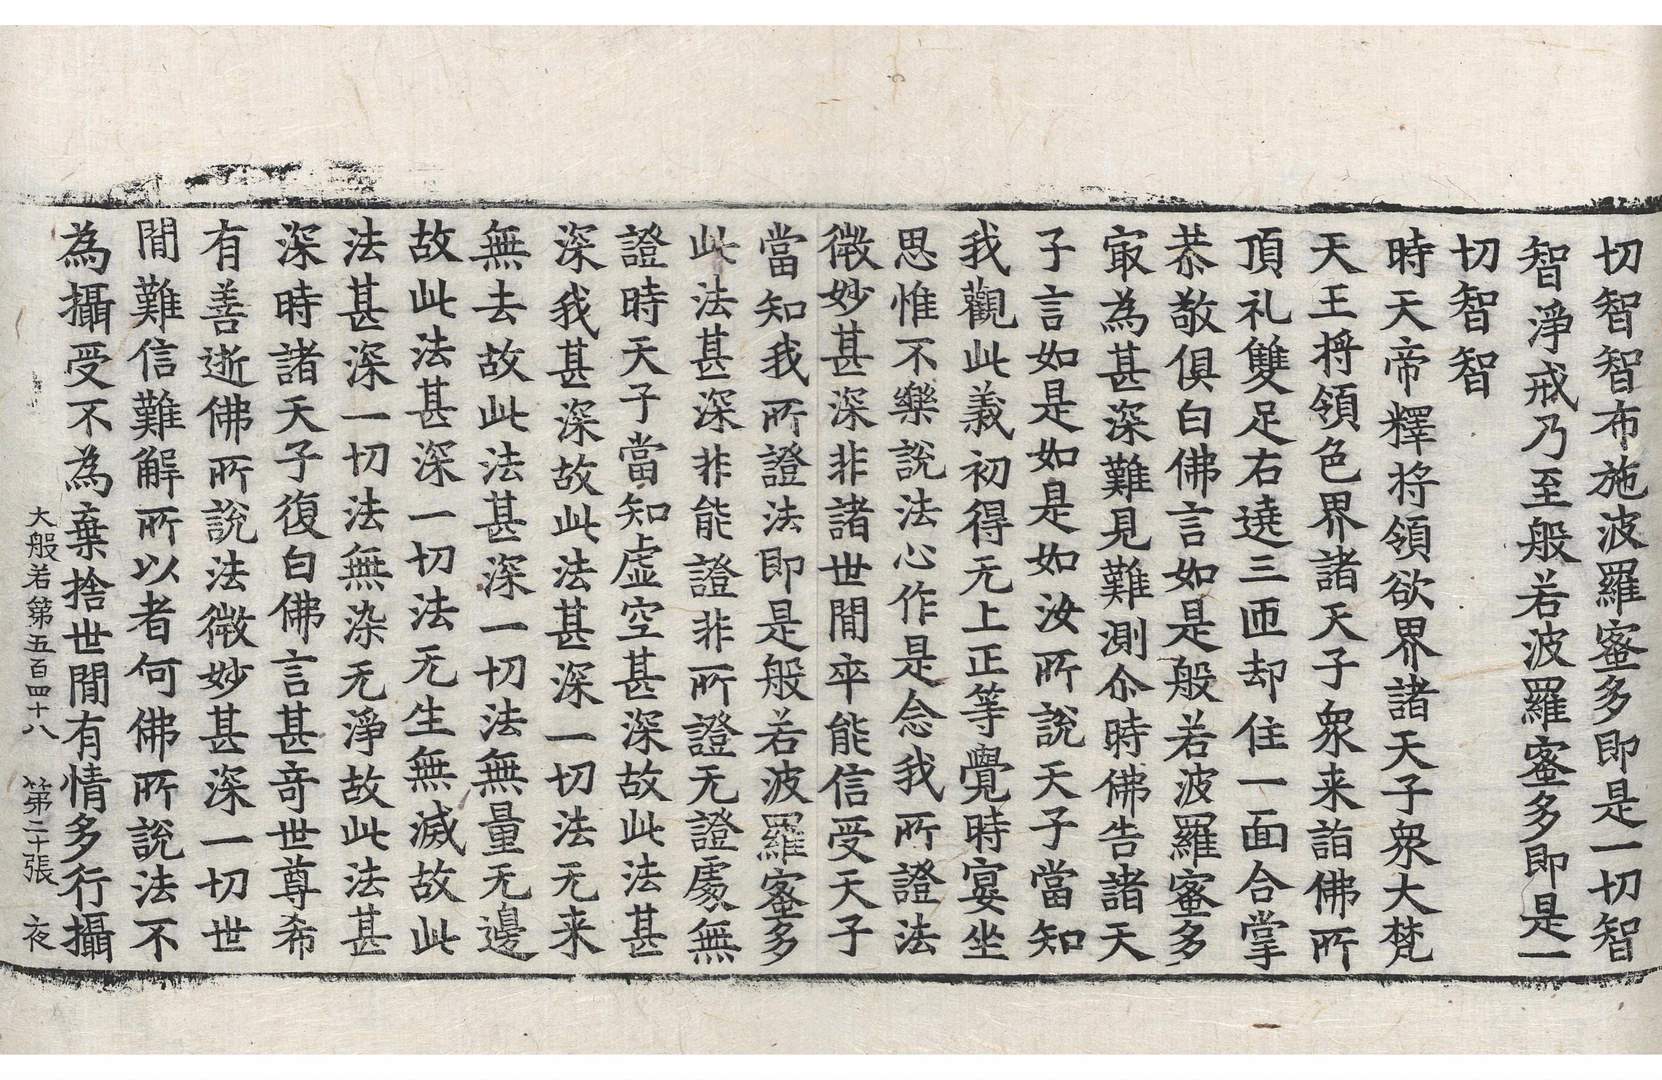 切智智布施波羅蜜多即是一切智
智淨戒乃至般若波羅蜜多即是一
切智智
時天帝釋將領欲界諸天子衆大梵
天王將領色界諸天子衆来詣佛所
頂礼雙足右遶三匝却住一面合掌
恭敬俱白佛言如是般若波羅蜜多
㝡為甚深難見難測尒時佛告諸天
子言如是如是如汝所說天子當知
我觀此義初得无上正等覺時宴坐
思惟不樂說法心作是念我所證法
微妙甚深非諸世間卒能信受天子
當知我所證法即是般若波羅蜜多
此法甚深非能證非所證无證處無
證時天子當知虛空甚深故此法甚
深我甚深故此法甚深一切法无来
無去故此法甚深一切法無量无邊
故此法甚深一切法无生無滅故此
法甚深一切法無染无淨故此法甚
深時諸天子復白佛言甚竒世尊希
有善逝佛所說法微妙甚深一切世
間難信難解所以者何佛所說法不
為攝受不為棄捨世間有情多行攝
大般若第五百四十八 第二十張 夜